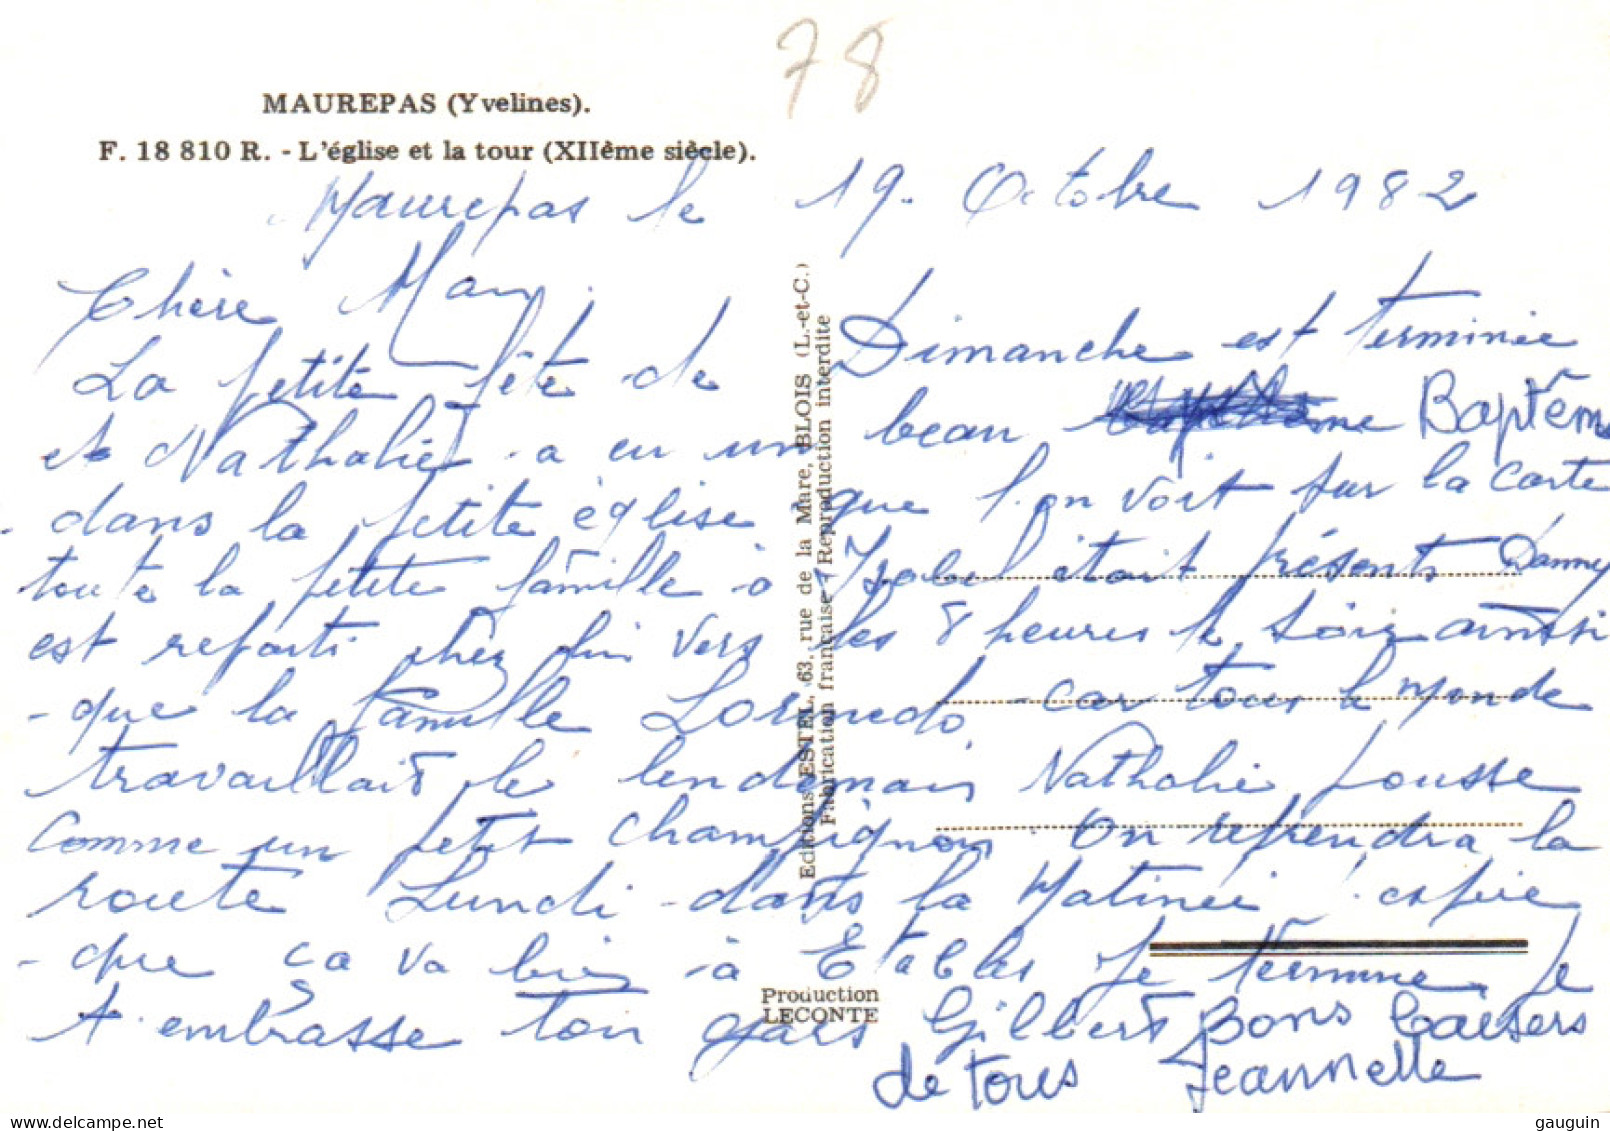 78
MAUREPAS (Yvelines).
F. 18 810 R. - L'église et la tour (XIIème siècle).
Maurepas le 19. Octobre 1982
Chère Man
La petite fête de Dimanche est terminée
et Nathalie a eu un beau Baptêm
dans la petite église que l'on voit sur la carte
toute la petite famille à Isabel était présents Danney
est reparti chez lui vers les 8 heures le soir aussi
que la famille Lorendo car tous le monde
travaillait le lendemain Nathalie pousse
comme un petit champignon On reprendra la
route Lundi dans la Matinée j'espère
que ça va bien à Etables Je termine Je
t'embrasse ton gars Gilbert Bons baisers
de tous Jeannette
Editions ESTEL, 63, rue de la Mare, BLOIS (L.-et-C.)
Fabrication française Reproduction interdite
Production
LECONTE
gauguin